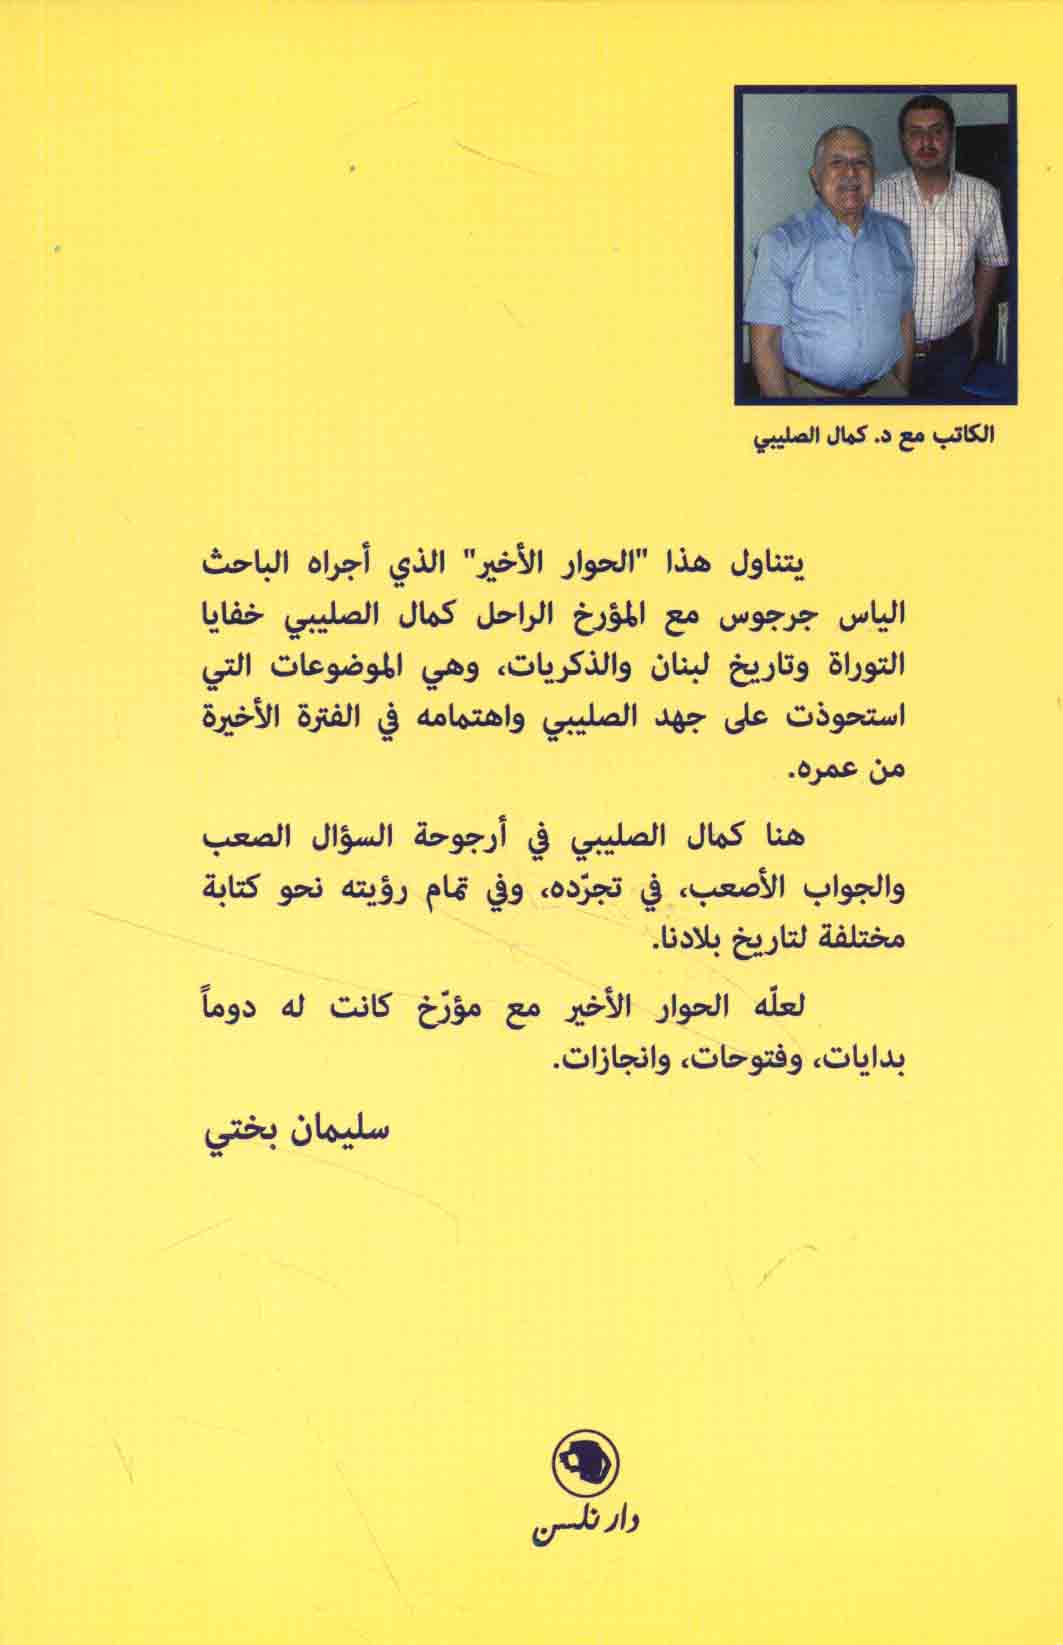 الكاتب مع د. كمال الصليبي
يتناول هذا "الحوار الأخير" الذي أجراه الباحث
الياس جرجوس مع المؤرخ الراحل كمال الصليبي خفايا
التوراة وتاريخ لبنان والذكريات، وهي الموضوعات التي
استحوذت على جهد الصليبي واهتمامه في الفترة الأخيرة
من عمره.
هنا كمال الصليبي في أرجوحة السؤال الصعب
والجواب الأصعب، في تجرّده، وفي تمام رؤيته نحو كتابة
مختلفة لتاريخ بلادنا.
لعلّه الحوار الأخير مع مؤرّخ كانت له دوماً
بدايات، وفتوحات، وانجازات.
سليمان بختي
دار نلسن